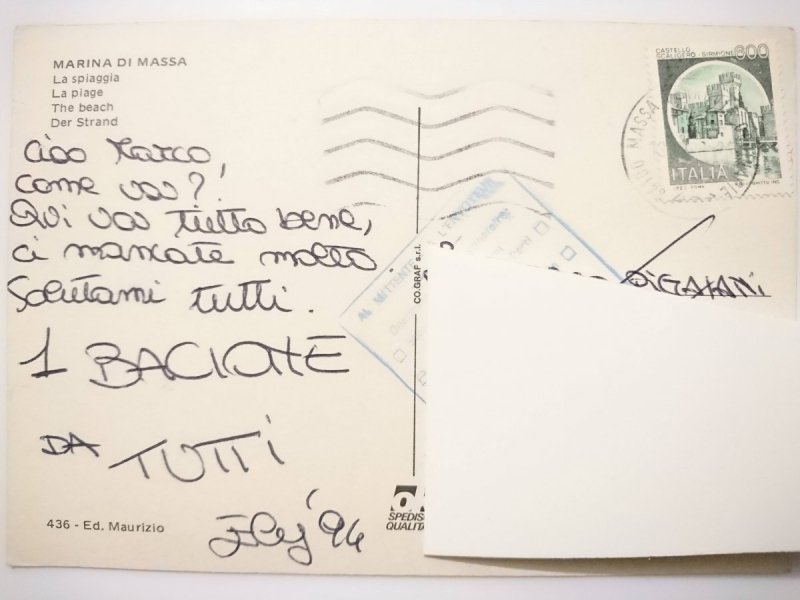 MARINA DI MASSA
La spiaggia
La plage
The beach
Der Strand
Ciao Marco,
come va?
Qui va tutto bene,
ci mancate molto
Salutami tutti.
1 BACIONE
DA TUTTI
Ely '94
436 - Ed. Maurizio
CO.GRAF s.r.l.
SPEDIS
QUALITA
CASTELLO
SCALIGERO - SIRMIONE
600
ITALIA
MASSA
AL MITTENTE